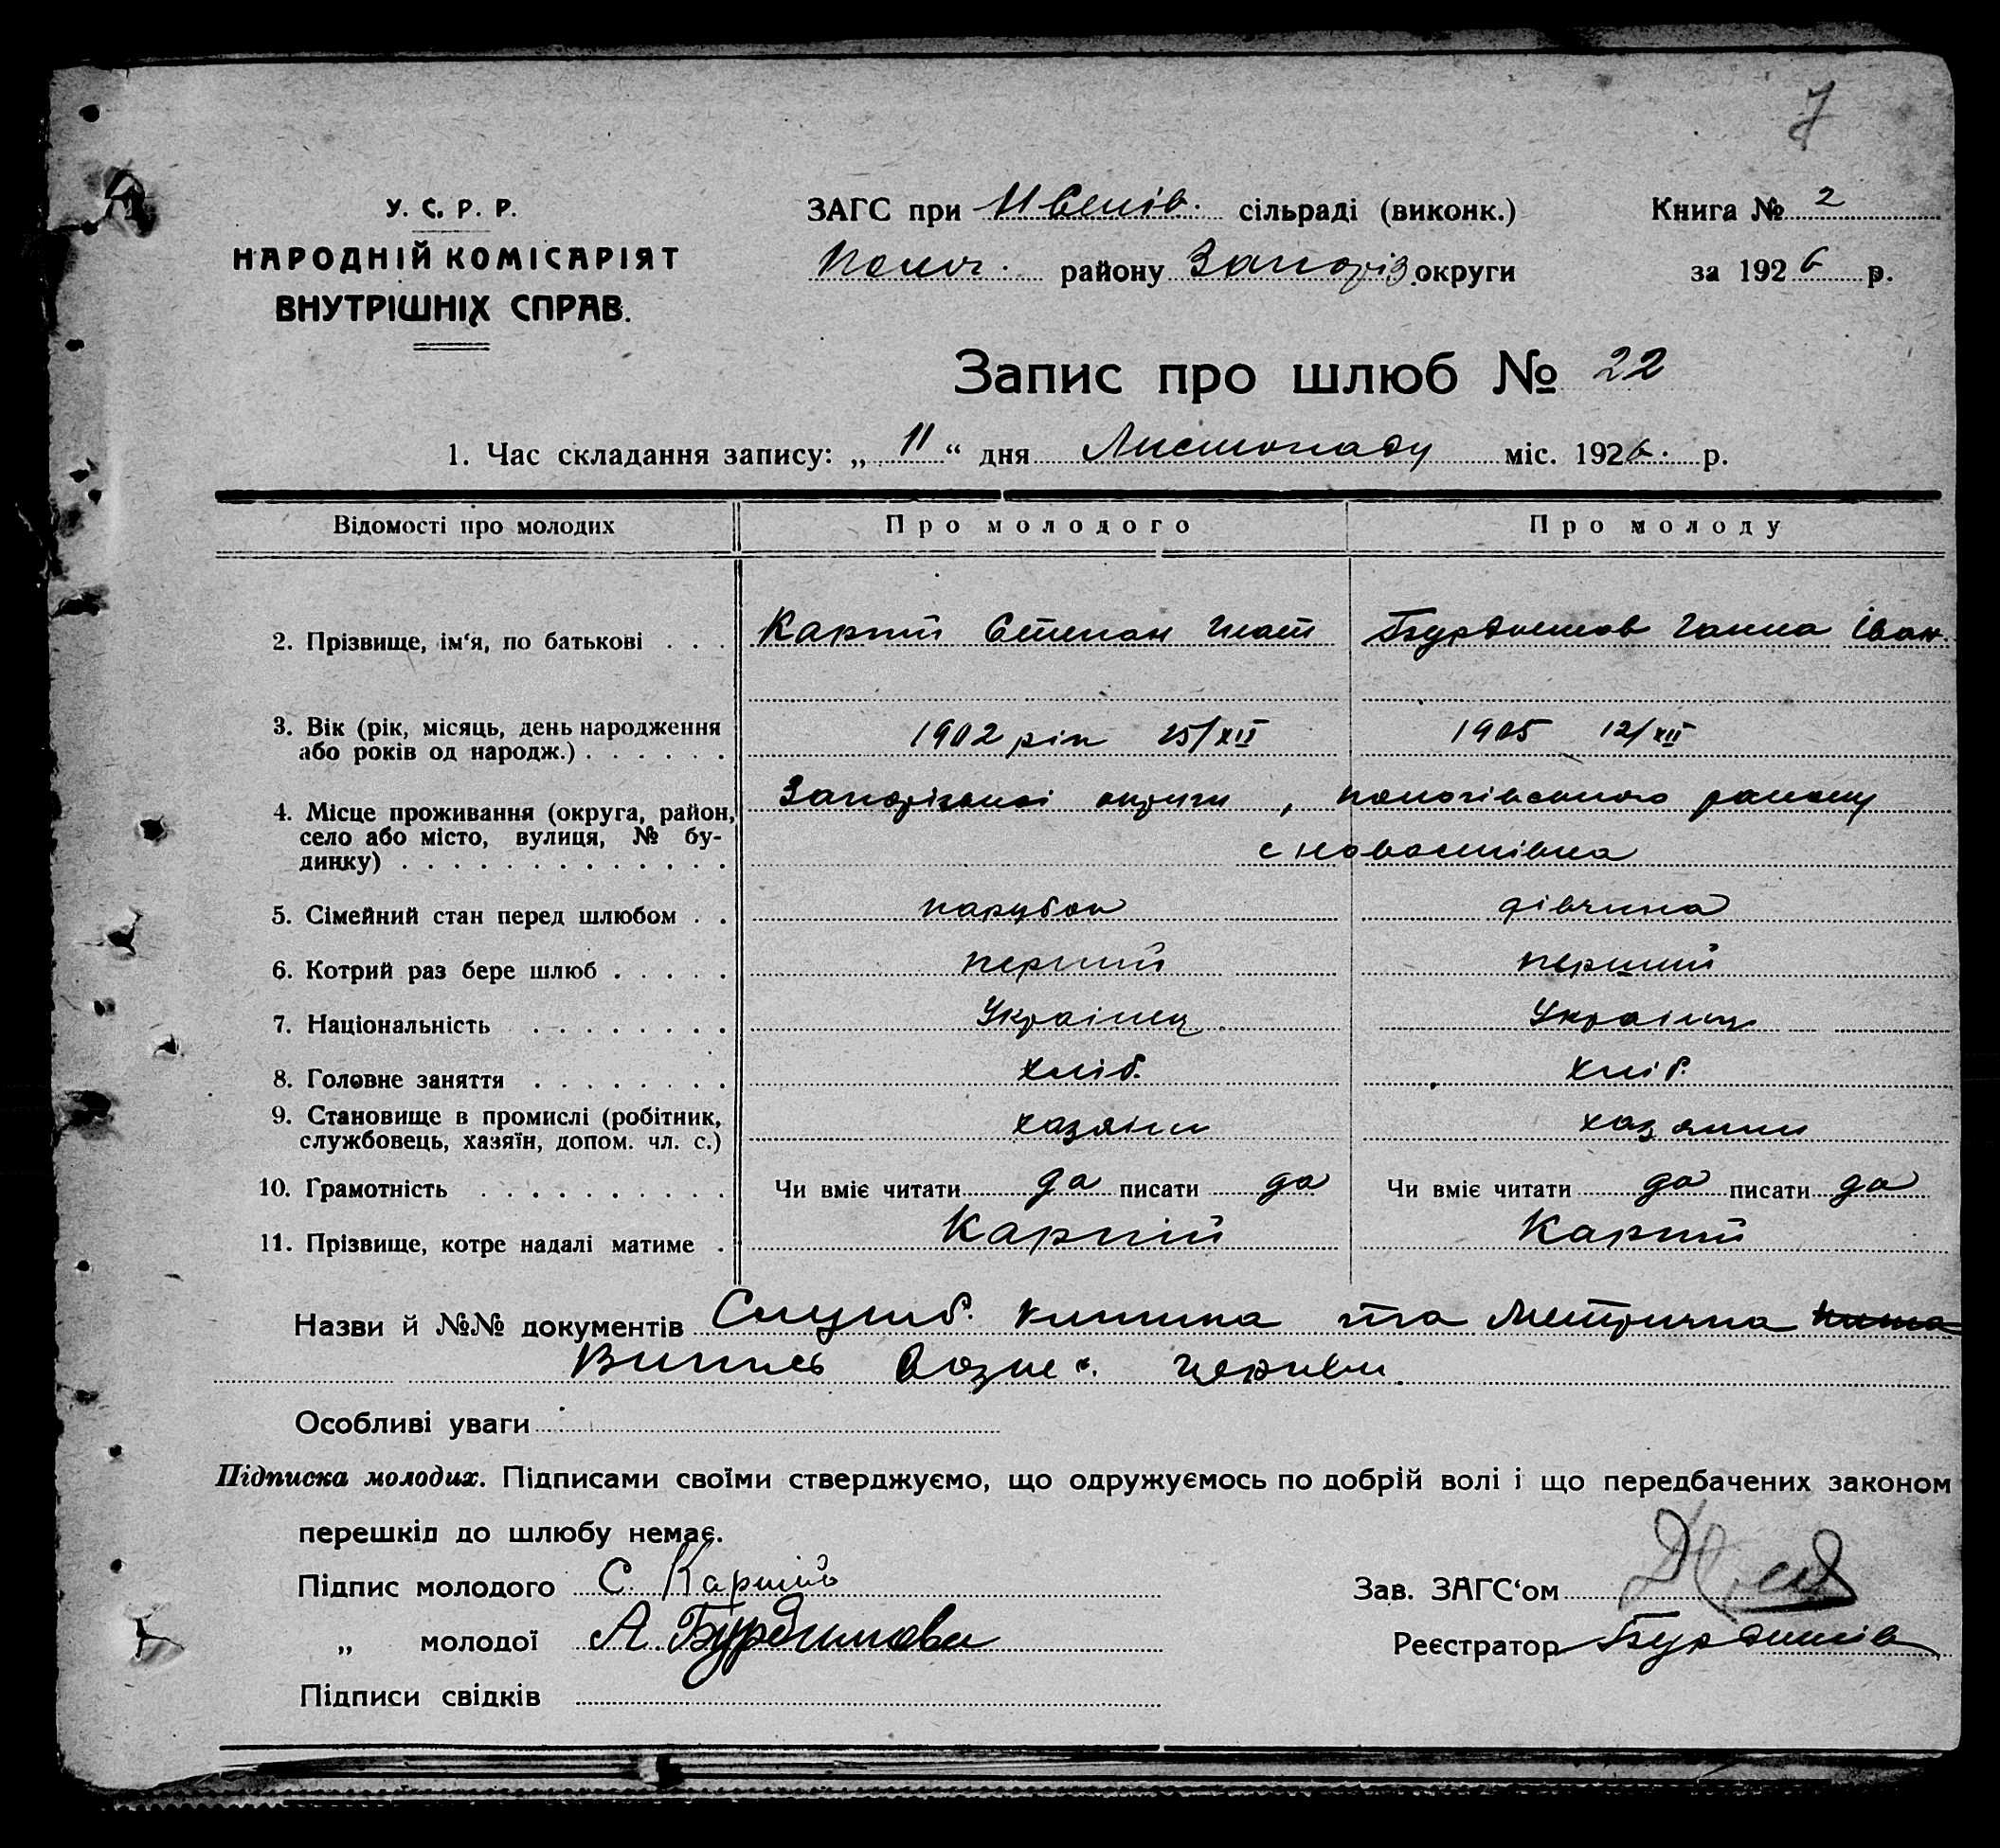 7
У. С. Р. Р.
НАРОДНІЙ КОМІСАРІЯТ
ВНУТРІШНІХ СПРАВ.
ЗАГС при сільраді (виконк.) Книга № 2
Полог. району Запоріз. округи за 1926 р.
Запис про шлюб № 22
1. Час складання запису: „ 11 “ дня Листопаду міс. 1926. р.
Відомості про молодих Про молодого Про молоду
2. Прізвище, ім'я, по батькові . . . Карпій Степан Гнат Ганна Іван.
3. Вік (рік, місяць, день народження 1902 рік 25/XII 1905 12/XII
або років од народж.) . . . . . .
4. Місце проживання (округа, район, Запорізької округи , пологівського району
село або місто, вулиця, № бу- с новоселівка
динку) . . . . . . . . . . . . .
5. Сімейний стан перед шлюбом . . парубок дівчина
6. Котрий раз бере шлюб . . . . . перший перший
7. Національність . . . . . . . . Українец Українц
8. Головне заняття . . . . . . . . хліб. хліб.
9. Становище в промислі (робітник, хазяїн хазяини
службовець, хазяїн, допом. чл. с.)
10. Грамотність . . . . . . . . . . Чи вміє читати да писати да Чи вміє читати да писати да
11. Прізвище, котре надалі матиме . Карпій Карпій
Назви й №№ документів Служб. книжка та Метрична
Випись Возне с. церкви.
Особливі уваги
Підписка молодих. Підписами своїми стверджуємо, що одружуємось по добрій волі і що передбачених законом
перешкід до шлюбу немає.
Підпис молодого С. Карпій Зав. ЗАГС‘ом
„ молодої А. Реєстратор
Підписи свідків